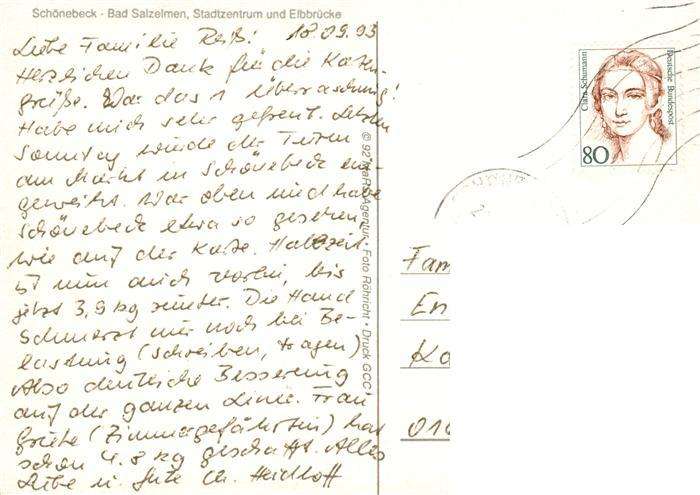 Schönebeck - Bad Salzelmen, Stadtzentrum und Elbbrücke
Liebe Familie Reiß! 18.09.93
Herzlichen Dank für die Karten-
grüße. War das 1 Überraschung!
Habe mich sehr gefreut. Letzten
Sonntag wurde der Turm
am Markt in Schönebeck ein-
geweiht. War oben und habe
Schönebeck etwa so gesehen,
wie auf der Karte. Halbzeit
ist nun auch vorbei, bis
jetzt 3,9 kg runter. Die Hand
Schmerzt nur noch bei Be-
lastung (schreiben, tragen)
Also deutliche Besserung
auf der ganzen Linie. Frau
(Zimmergefährtin) hat
schon 4.8 kg geschafft. Alles
Liebe u. Gute Ch.
© 92 Agentur • Foto Röhricht • Druck GCC
Clara Schumann
Deutsche Bundespost
80
Fam
En
Ko
010